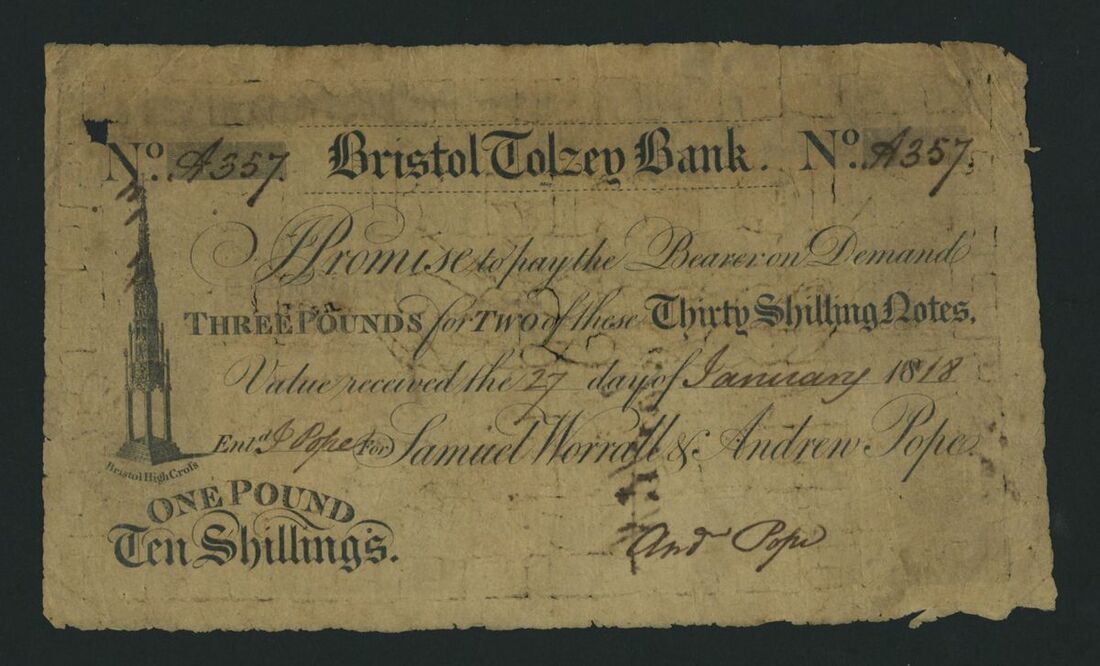 No. A357. Bristol Tolzey Bank. No. A357.
I Promise to pay the Bearer on Demand
THREE POUNDS for TWO of these Thirty Shilling Notes,
Value received the 27 day of January 1818
Entd J Pope For Samuel Worrall & Andrew Pope.
Bristol High Cross
ONE POUND
Ten Shillings.
And Pope